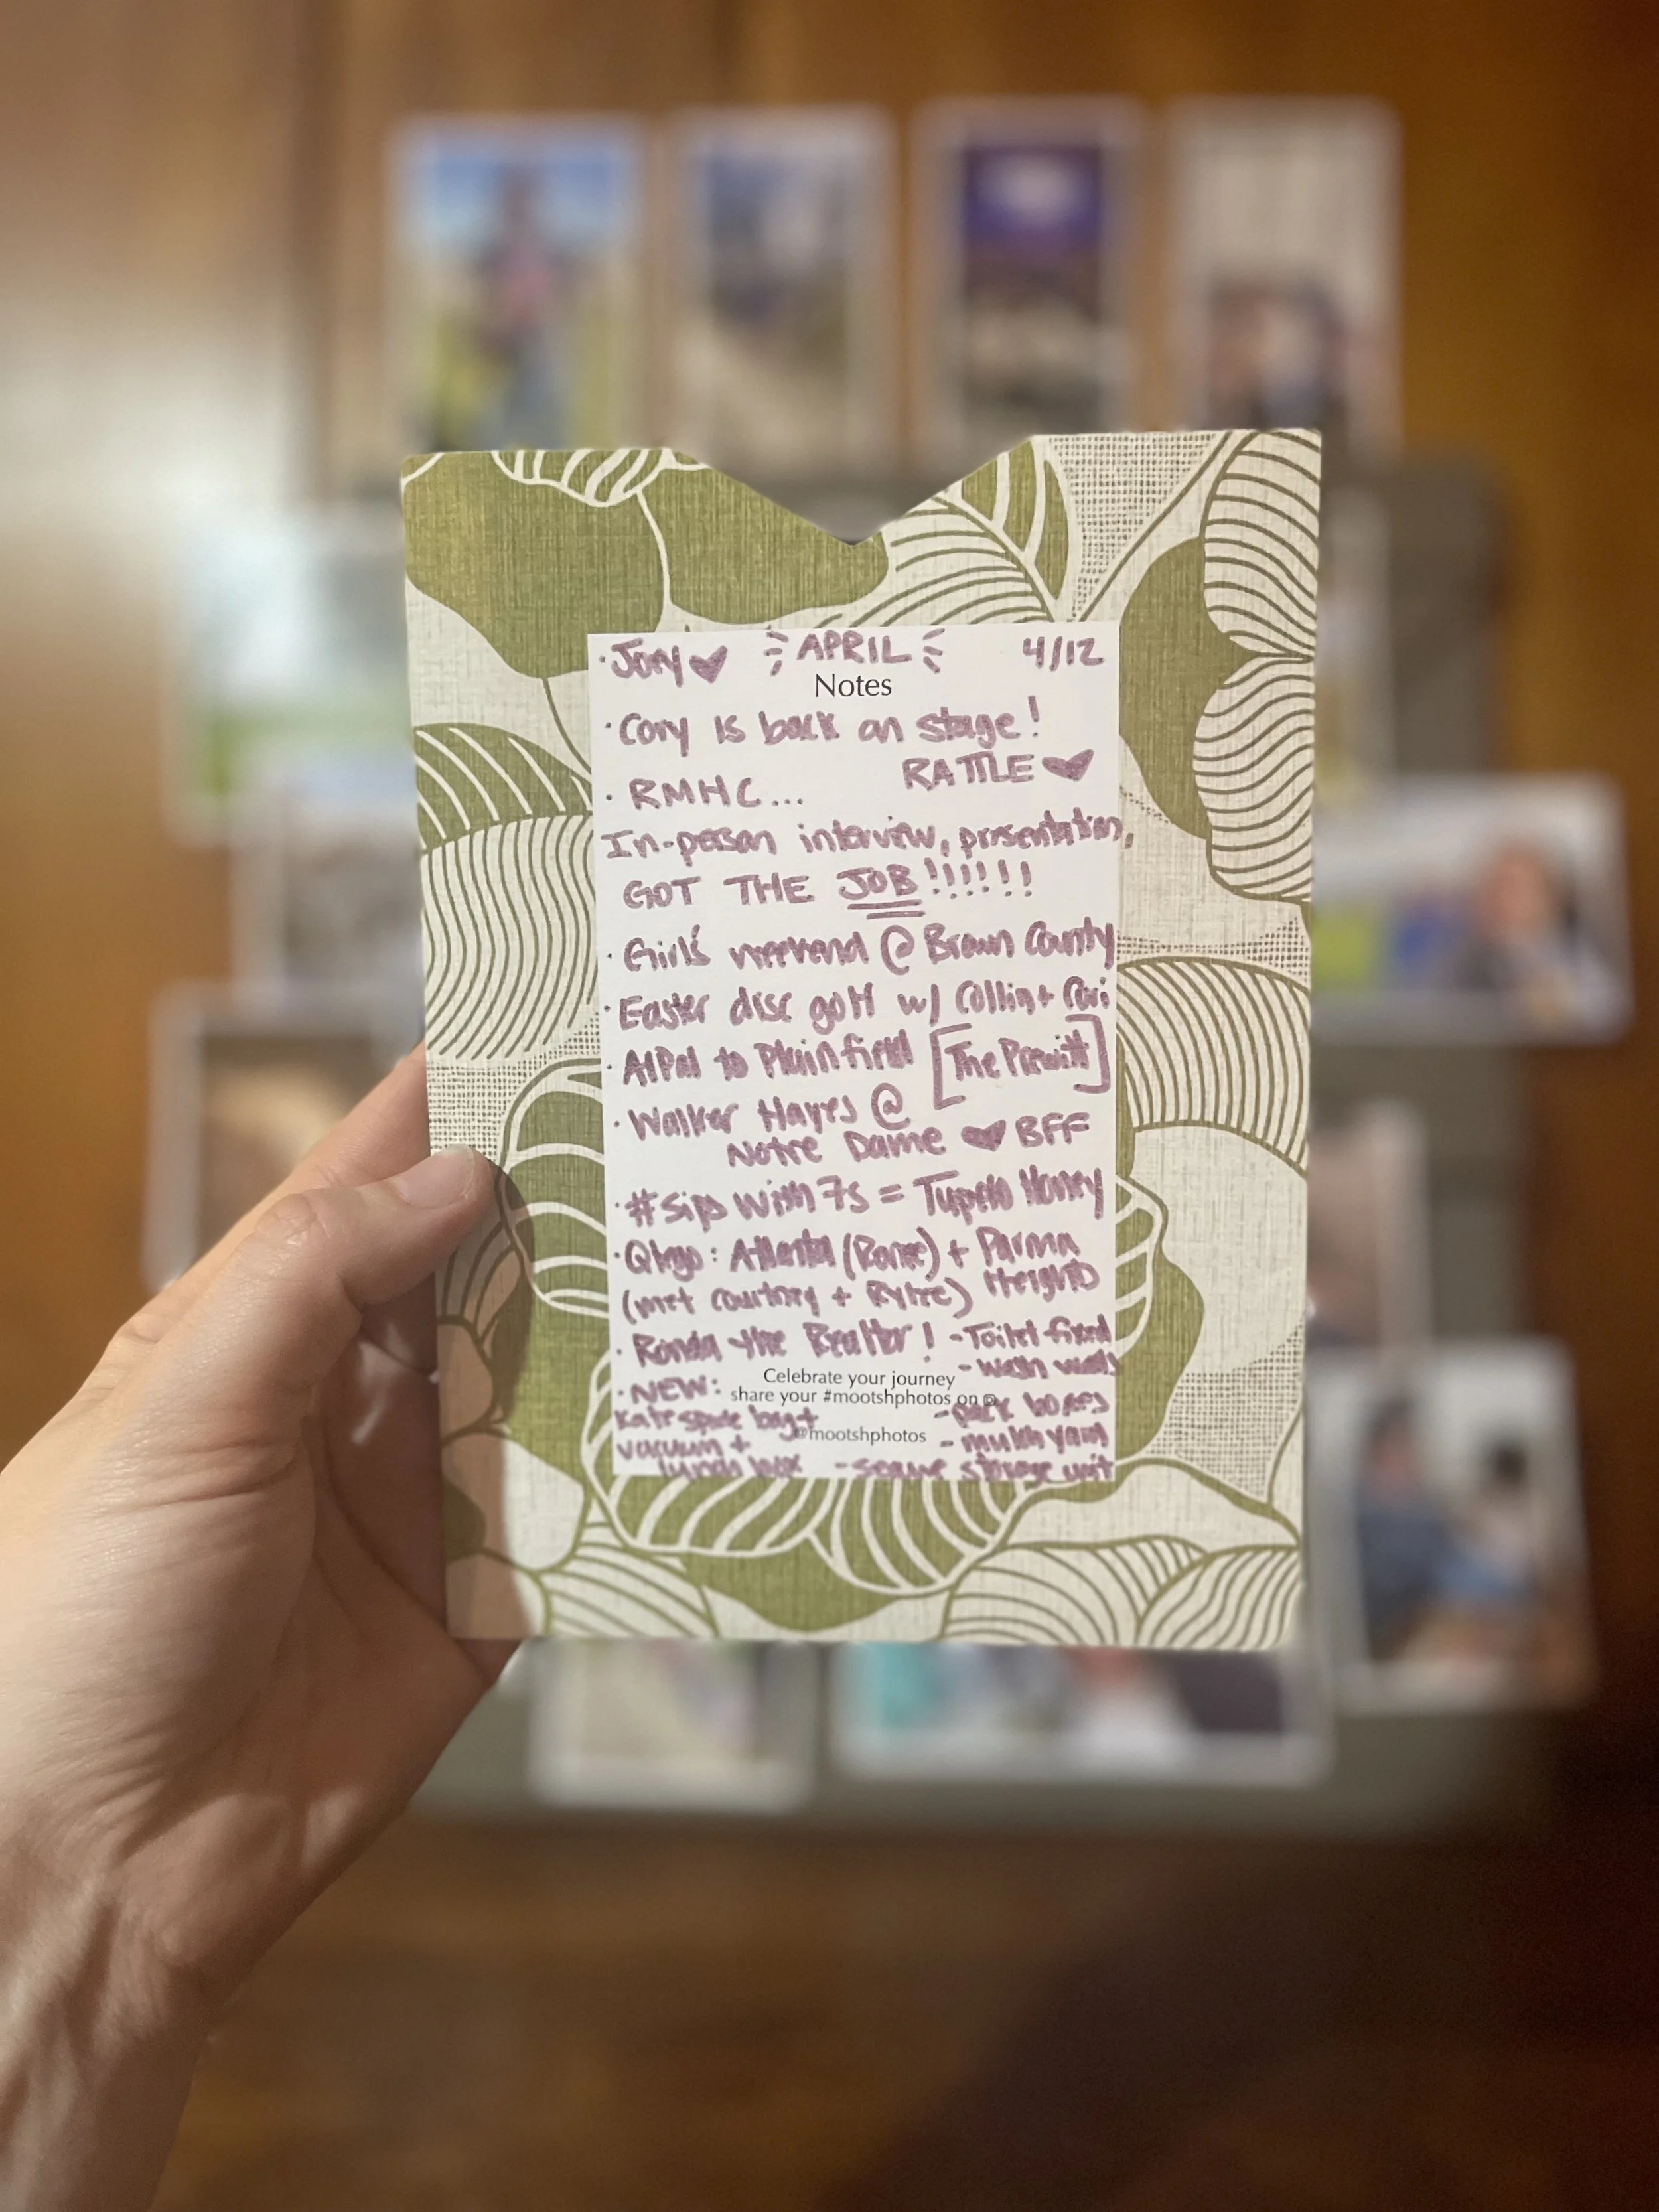 · Jory ♥ APRIL 4/12
Notes
· Cory is back on stage!
RATTLE ♥
· RMHC...
In-person interview, presentation,
GOT THE JOB!!!!!!
· Girls' weekend @ Brown County
· Easter disc golf w/ Collin +
· to Plainfield [The Prewitt]
· Walker Hayes @
Notre Dame ♥ BFF
· #sipswith7s = Tupelo Honey
· : Atlanta (Ranee) + Parma
Heights
(met Courtney + Rylee)
· Ronda the Realtor! - Toilet fixed
- wash walls
Celebrate your journey
· NEW: share your #mootshphotos on
Kate Spade bag + - pack boxes
@mootshphotos
vacuum + - mulch yard
lunch box - secure storage unit